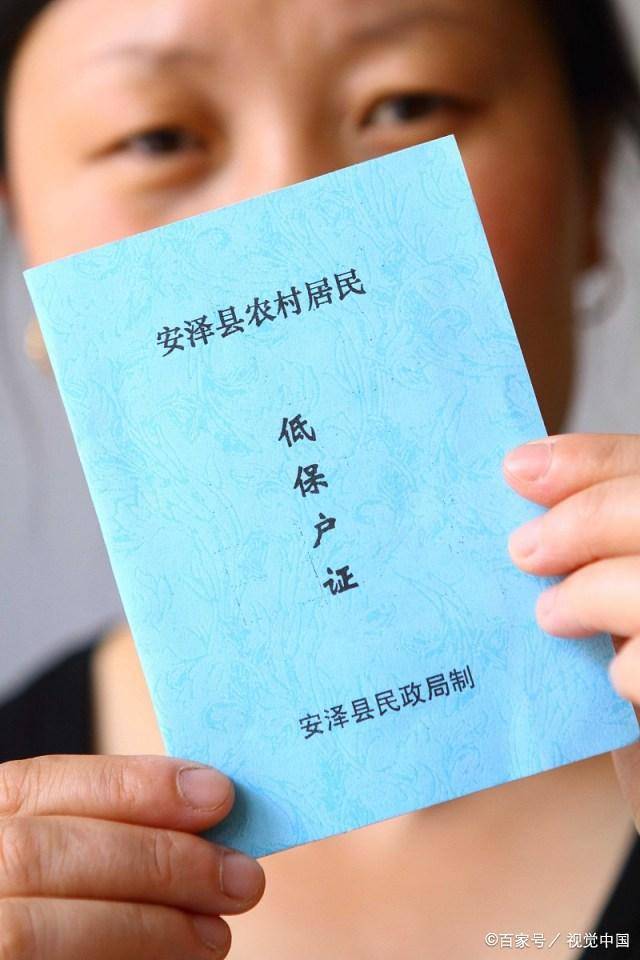 安泽县农村居民
低保户证
安泽县民政局制
©百家号／视觉中国